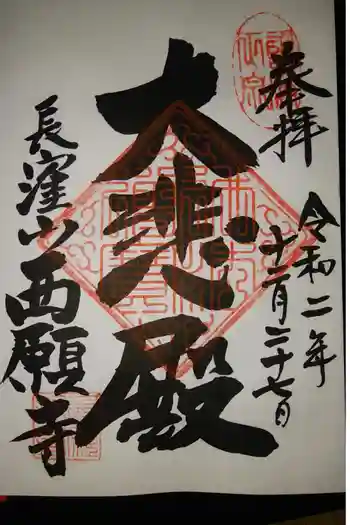 奉拝
令和二年
十二月二十七日
大悲殿
長窪山西願寺